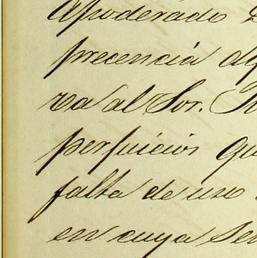 Apoderado
precencia
va al Sor.
perjuicios qu
falta de uso
en cuya Ser